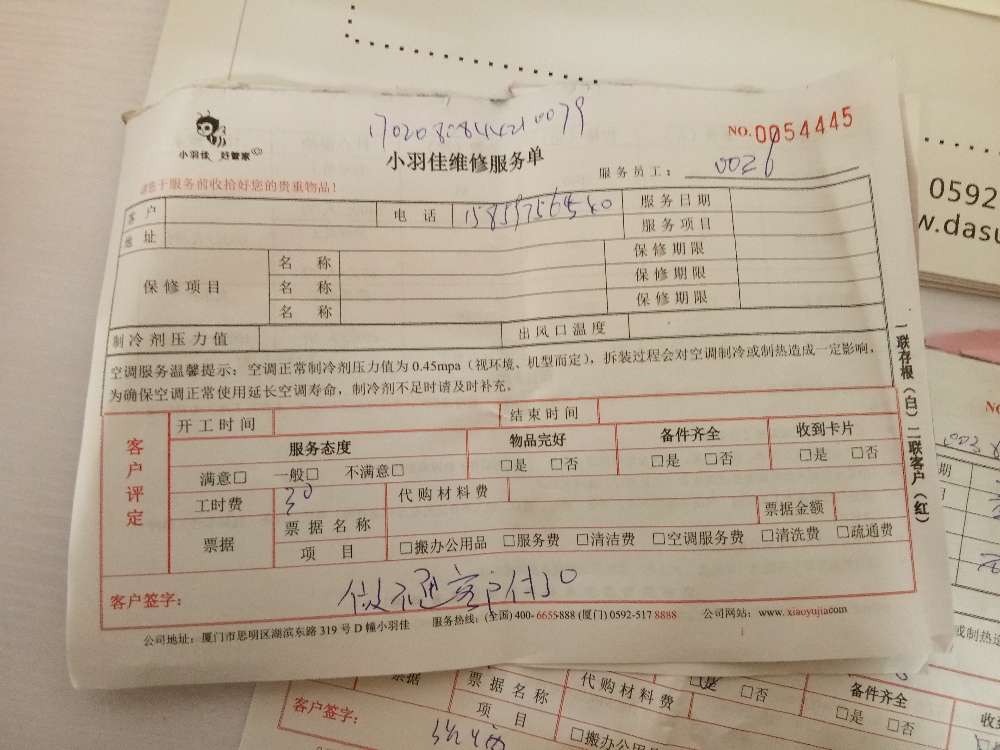 小羽佳 好管家
NO.0054445
小羽佳维修服务单
服务员工: 0026
请您于服务前收拾好您的贵重物品!
客户 电话 服务日期
地址 服务项目
保修项目 名称 保修期限
名称 保修期限
名称 保修期限
制冷剂压力值 出风口温度
空调服务温馨提示: 空调正常制冷剂压力值为 0.45mpa (视环境、机型而定), 拆装过程会对空调制冷或制热造成一定影响,
为确保空调正常使用延长空调寿命, 制冷剂不足时请及时补充。
客户评定
开工时间 结束时间
服务态度 物品完好 备件齐全 收到卡片
满意□ 一般□ 不满意□ □是 □否 □是 □否 □是 □否
工时费 30 代购材料费
票据 票据名称 票据金额
项目 □搬办公用品 □服务费 □清洁费 □空调服务费 □清洗费 □疏通费
客户签字: 做不通客户付30
公司地址: 厦门市思明区湖滨东路 319 号 D 幢小羽佳 服务热线: (全国) 400-6655-888 (厦门) 0592-517 8888 公司网站: www.xiaoyujia.com
一联存根(白) 二联客户(红)
0592
w.dasu
票据 票据名称 代购材料费 □是 □否 备件齐全
项目 □搬办公用品 □是 □否
客户签字: